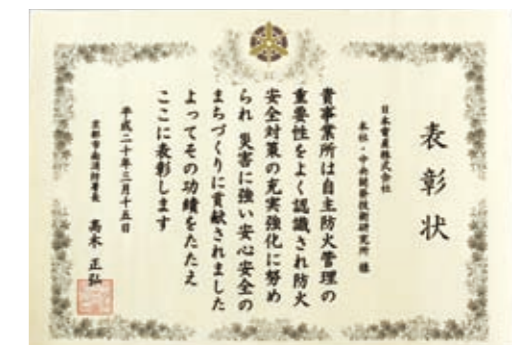 表彰状
日本電産株式会社
本社・中央開発技術研究所 様
貴事業所は自主防火管理の
重要性をよく認識され防火
安全対策の充実強化に努め
られ 災害に強い安心安全の
まちづくりに貢献されました
よってその功績をたたえ
ここに表彰します
平成二十年三月十五日
京都市南消防署長 高木 正弘